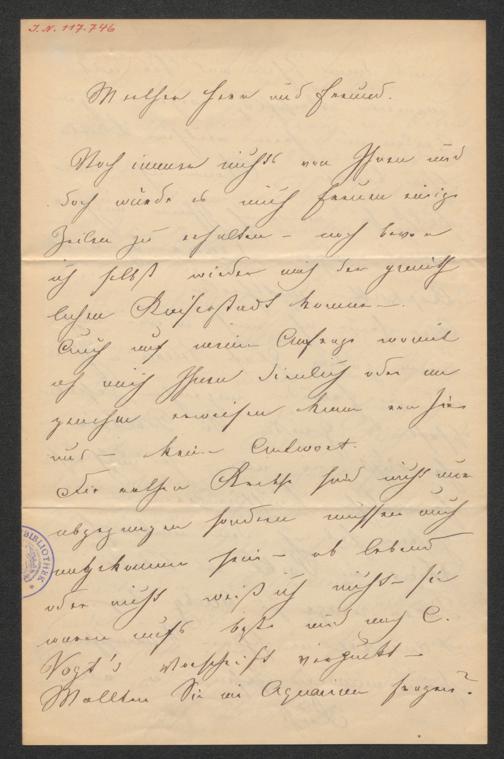 J. N. 117.746
Werther Herr und Freund.
Noch immer nichts von Ihnen und
doch würde es mich freuen einige
Zeilen zu erhalten – noch bevor
ich selbst wieder nach der gemüth
lichen Kaiserstadt komme –.
Auch auf meine Anfrage womit
ich mich Ihnen dienlich oder an
genehm erweisen kann von hier
aus – keine Antwort.
Die rothen Krebse sind nicht nur
abgegangen sondern müssen auch
angekommen sein – ob lebend
oder nicht weiß ich nicht – sie
waren aufs beste und nach C.
Vogt's Vorschrift verpackt –
Wollten Sie im Aquarium fragen?
BIBLIOTHEK